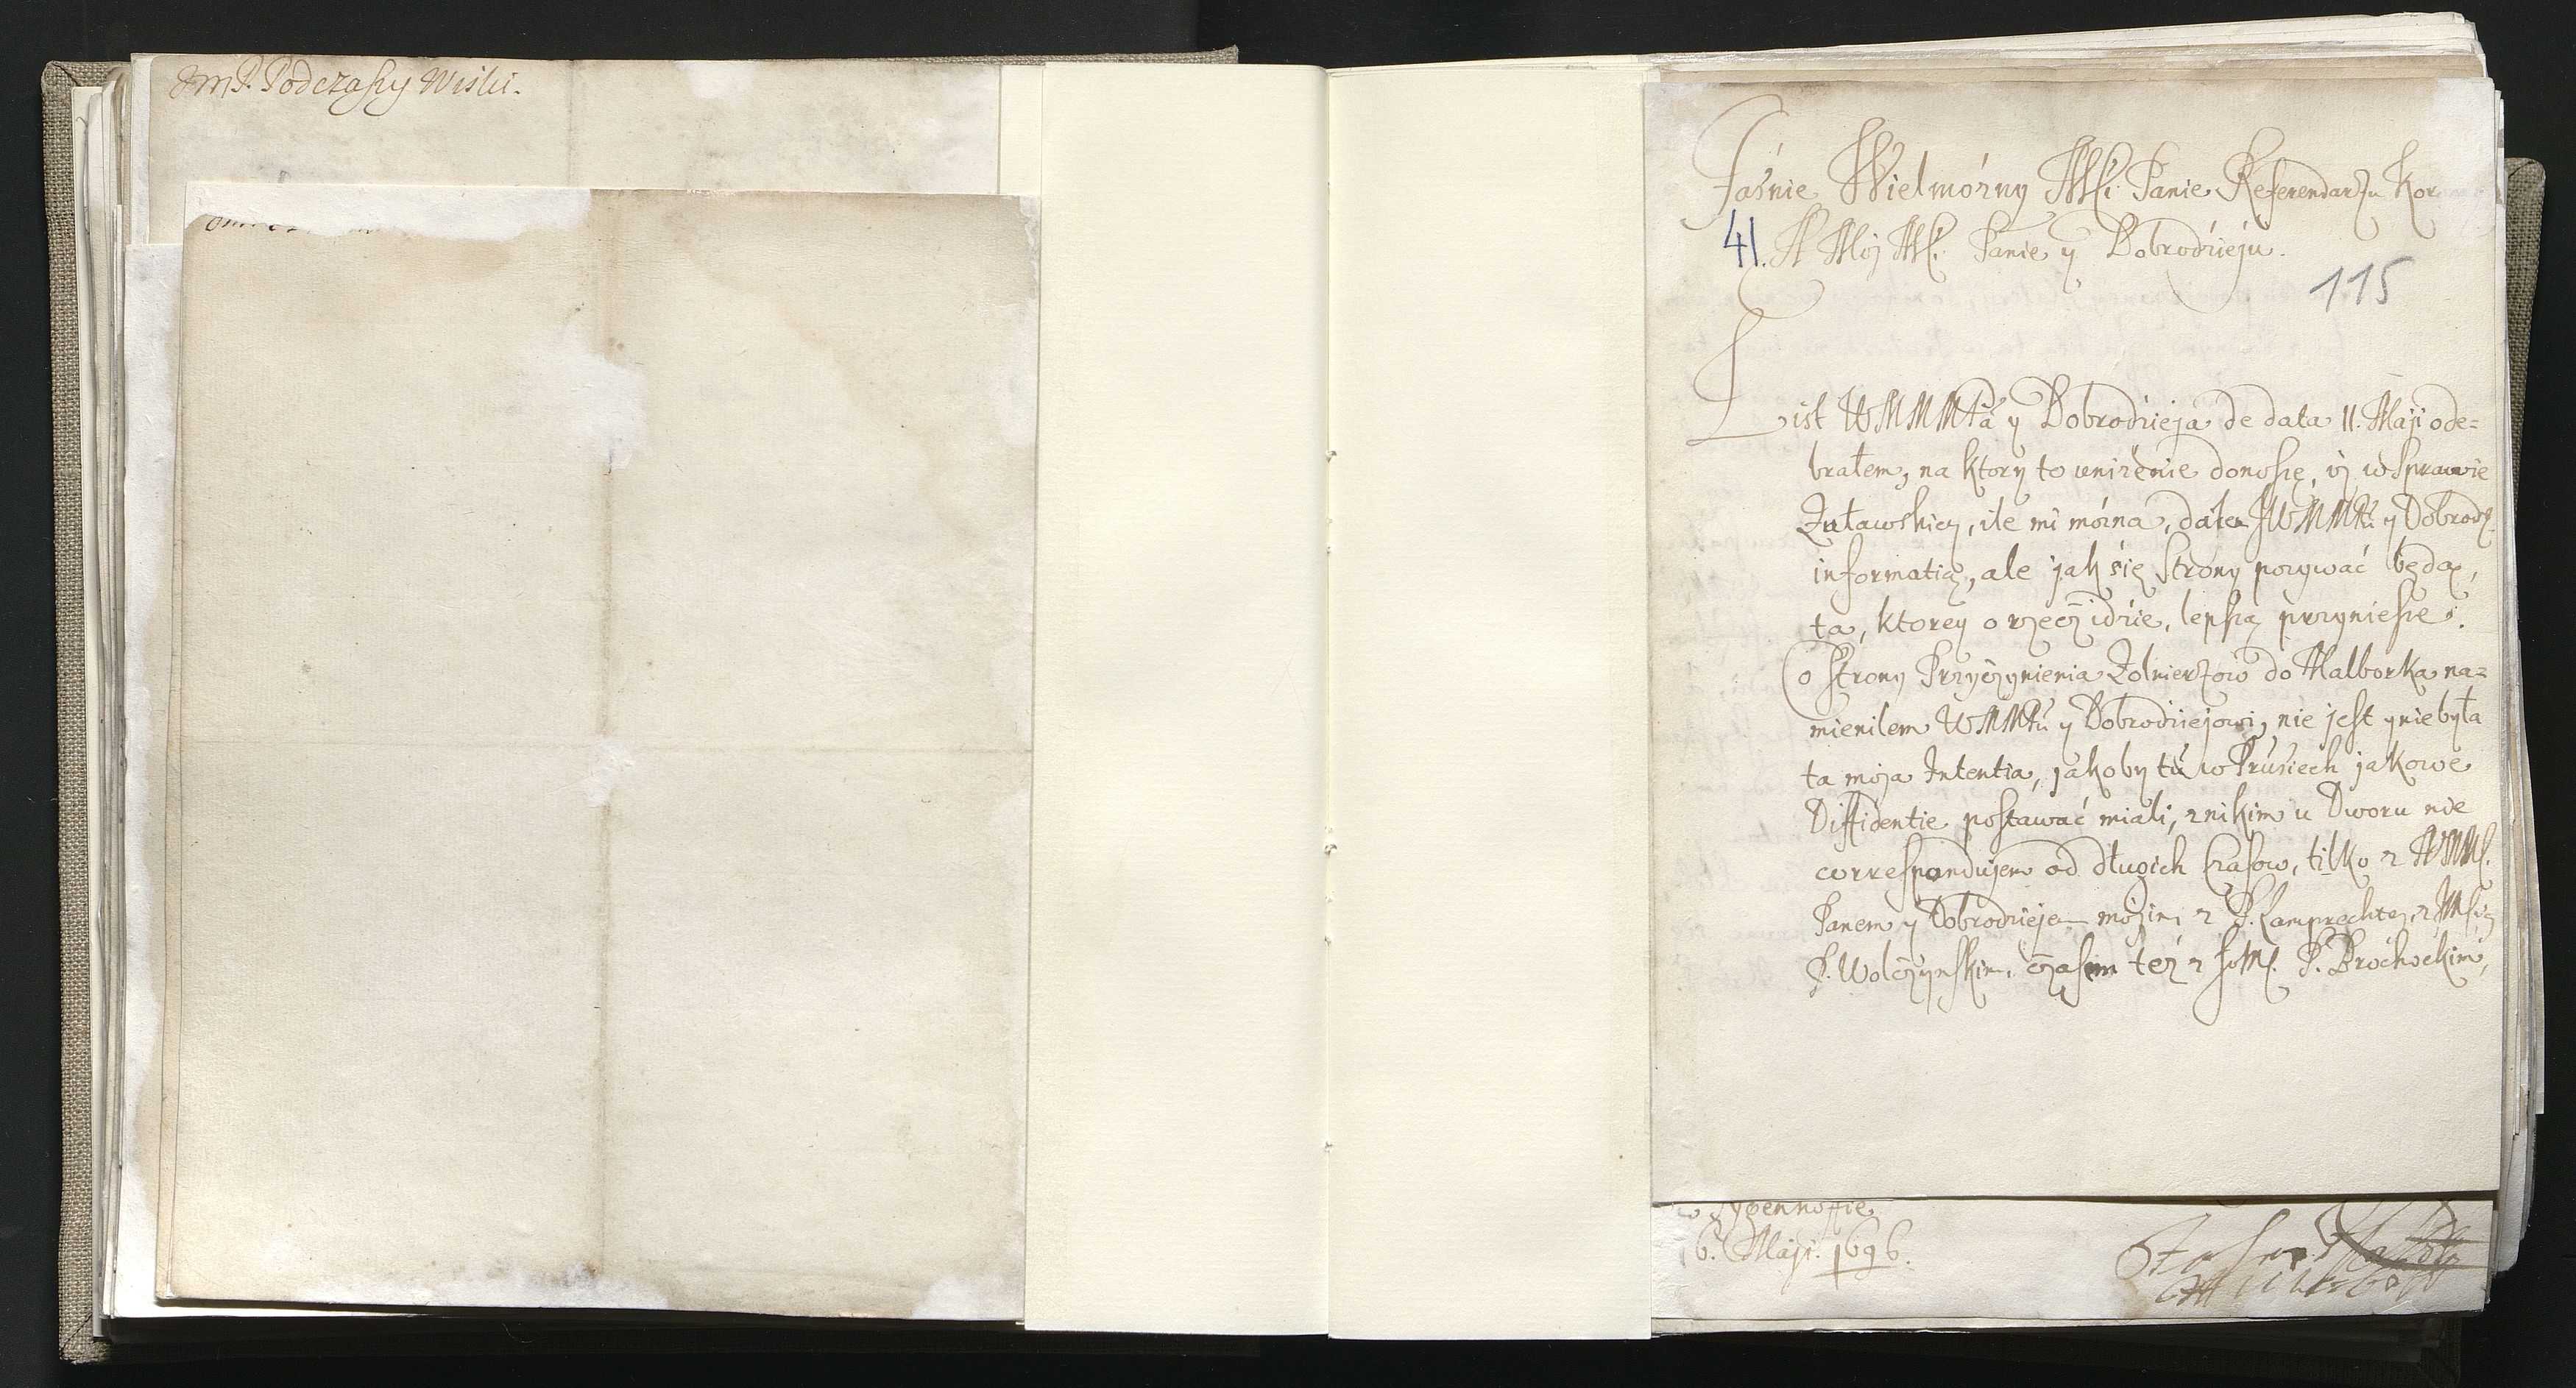 JmP. Podczaszy Wislic.
Jaśnie Wielmożny Msci Panie Referendarzu Kor
41. A Moj Msci Panie y Dobrodzieju.
115
List WMMMPa y Dobrodzieja de data 11. Maji ode=
brałem, na ktory to uniżenie donoszę, iż w Sprawie
Żuławskiey, ile mi można, dałem JWMMPu y Dobrodz.
informatią, ale jak się Strony pozywać będą,
ta, ktorey o rzecz idzie, lepszą przyniesie.
Co Strony Przyczynienia Żolnierzow do Malborka na=
mienilem WMMPu y Dobrodziejowi, nie jest y nie była
ta moja Intentia, jakoby tu w Prusiech jakowe
Diffidentie postawać miali, z nikim u Dworu nie
correspondujem od długich Czasow, tilko z WMM.
Panem y Dobrodziejem mojim, z P. Lamprechtem, z JMscią
P. Wolczynskim, czasem też z JeM. P. Brochockim,
w Tygenhoffie
6. Maji. 1696.